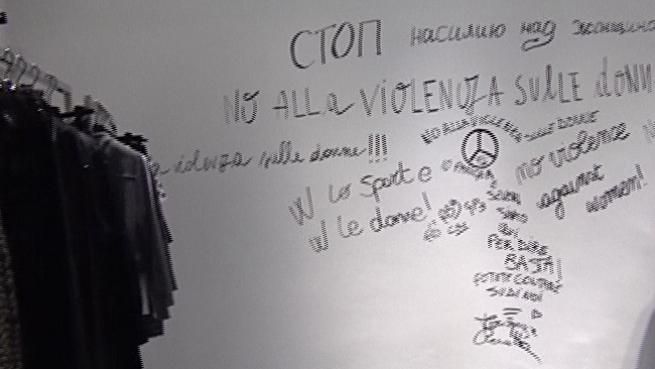 СТОП насилию над
NO ALLA VIOLENZA SULLE DONN
violenza sulle donne!!!
NO ALLA VIOLENZA SULLE DONNE
W lo Sport e
W le donne!
no violence
against
women!
PER DIRE
BASTA!
POTETE CONTARE
SU DI NOI